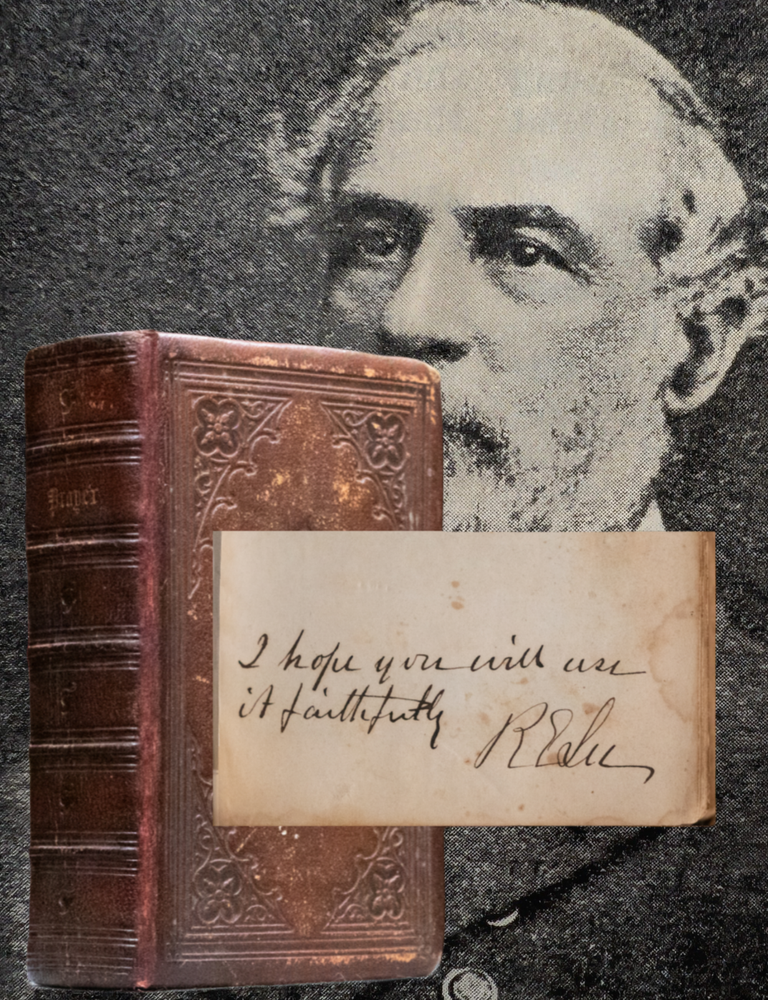 Prayer
I hope you will use
it faithfully
R E Lee